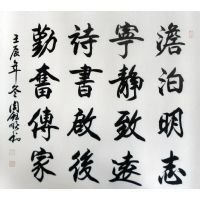 澹泊明志
寧靜致遠
詩書啟後
勤奮傳家
壬辰年冬周